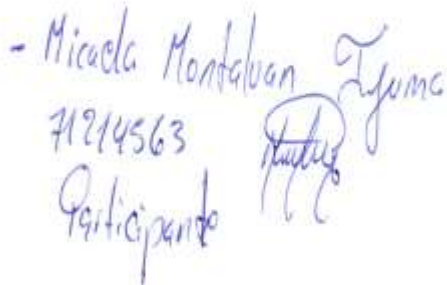 - Micaela Montalvan Tyuma
71214563
Participante